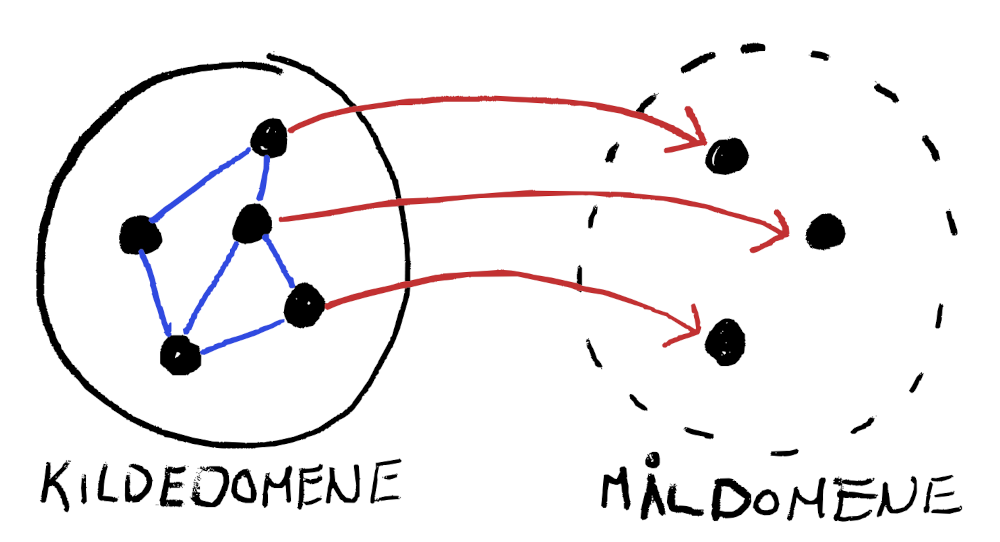 KILDEDOMENE
MÅLDOMENE